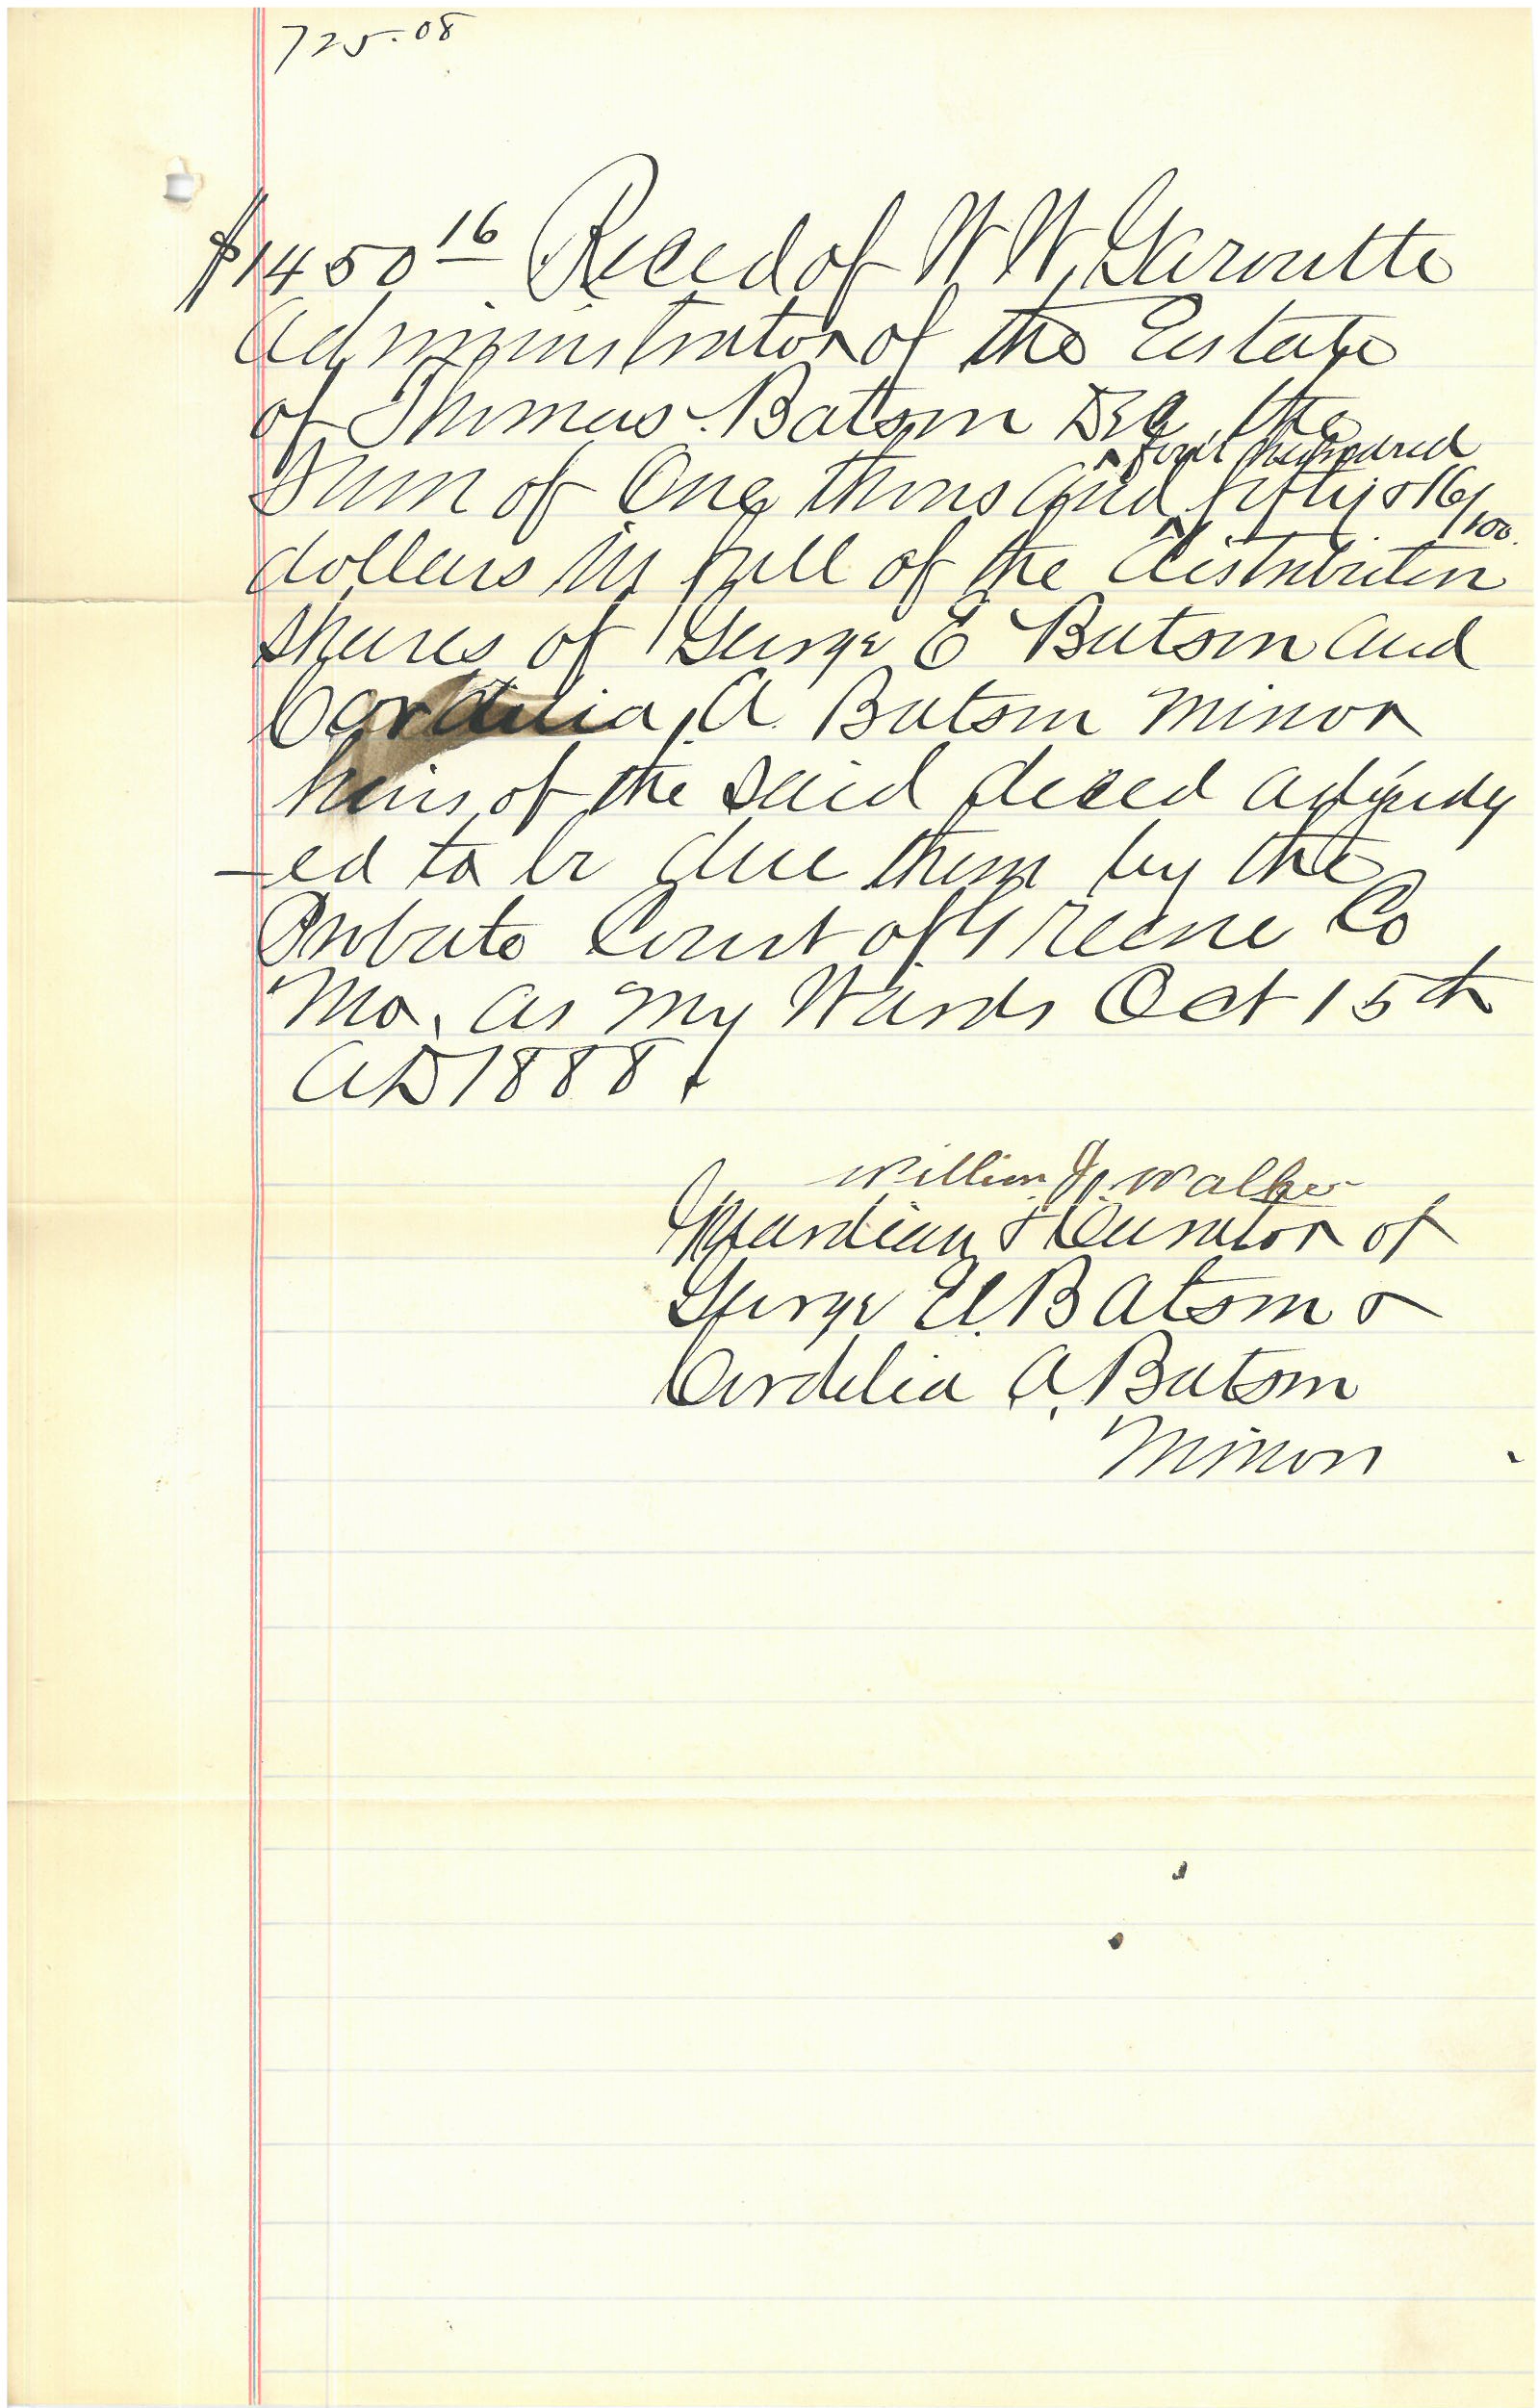 725.08
$1450 16 Recd of W W, Garoutte
Administrator of the Estate
of Thomas Batson Decd the
four hundred
Sum of One thousand fifty & 16/100.
dollars in full of the distributin
shares of George E Batson and
Cordelia, A. Batson minor
heirs of the said deced adjudg
-ed to be due them by the
Probate Court of Greene Co
Mo. as my Wards Oct 15th
AD 1888.
William J. Walker
Guardian & Curator of
George E. Batson &
Cordelia A. Batson
Minors